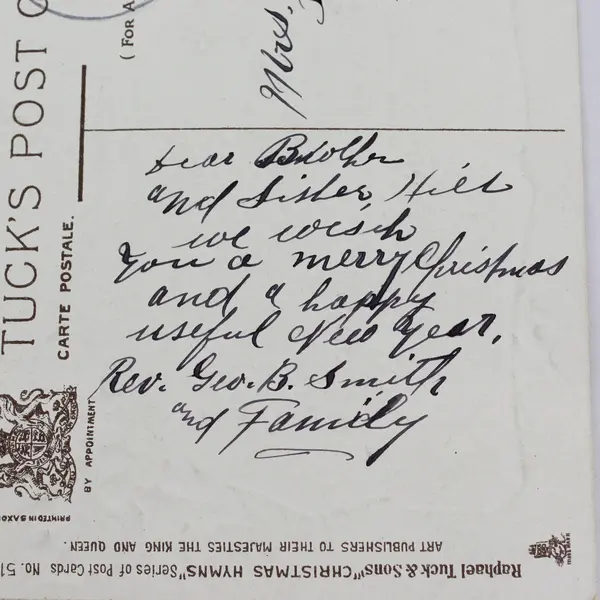 TUCK'S POST
CARTE POSTALE.
( For A
Mrs.
Dear Brother
and Sister, Hill
we wish
you a merry Christmas
and a happy
useful New Year.
Rev. Geo. B. Smith
and Family
BY APPOINTMENT
PRINTED IN SAXO
ART PUBLISHERS TO THEIR MAJESTIES THE KING AND QUEEN.
Raphael Tuck & Sons' "CHRISTMAS HYMNS" Series of Post Cards No. 51